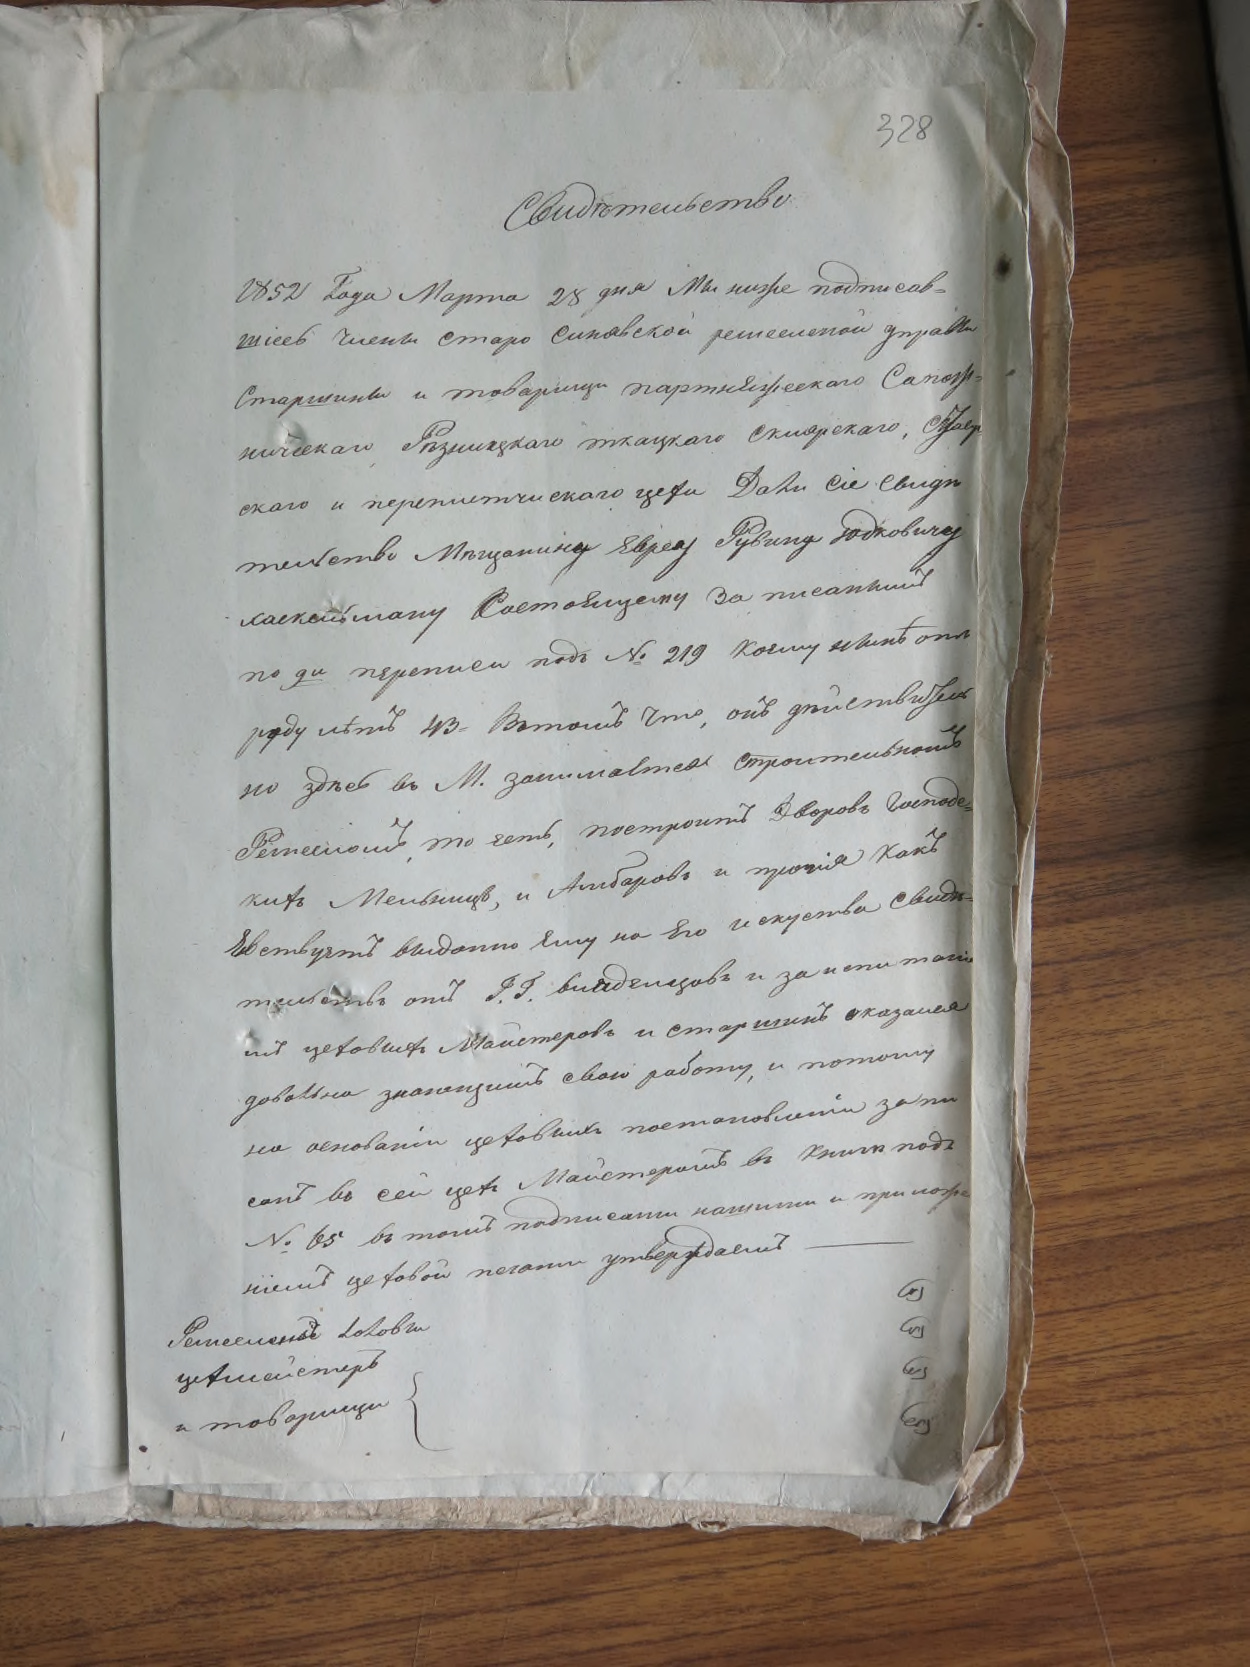 328
Свидѣтельство
1852 Года Марта 28 дня Мы ниже подписав-
шіесь Члены старо Синявской ремесленой управы
Старшины и товарищи партняжескаго Сапож-
ническаго Рѣзницкаго ткацкаго склярскаго,
скаго и переплетчискаго цеха Дали сіе свидѣ
тельство Мѣщанину Еврею Рувину Юдковичу
Состоящему За писанным
по ди переписи подъ № 219 коему нынѣ отъ
роду лѣтъ 43 - Втомъ что, онъ дѣйствитель
но здѣсь въ М. занимается строительнымъ
Ремесломъ, то есть, построитъ Дворовъ Господс-
кихъ Мельницъ, и Амбаровъ и прочія какъ
Евствуетъ выданно Ему на Его искуства свидѣ-
тельствъ отъ Г.Г. владельцовъ и за испитані
мъ цеховыхъ Майстеровъ и старшинъ оказался
довольно знающимъ свою работу, и потому
на основаніи цеховыхъ постановленіи запи
санъ въ сей цехъ Майстеромъ въ книги подъ
№ 65 въ томъ подписами нашими и приложе
ніемъ цеховой печати утверждаемъ
Ремесленый Голова
цехмейстеръ
и товарищи